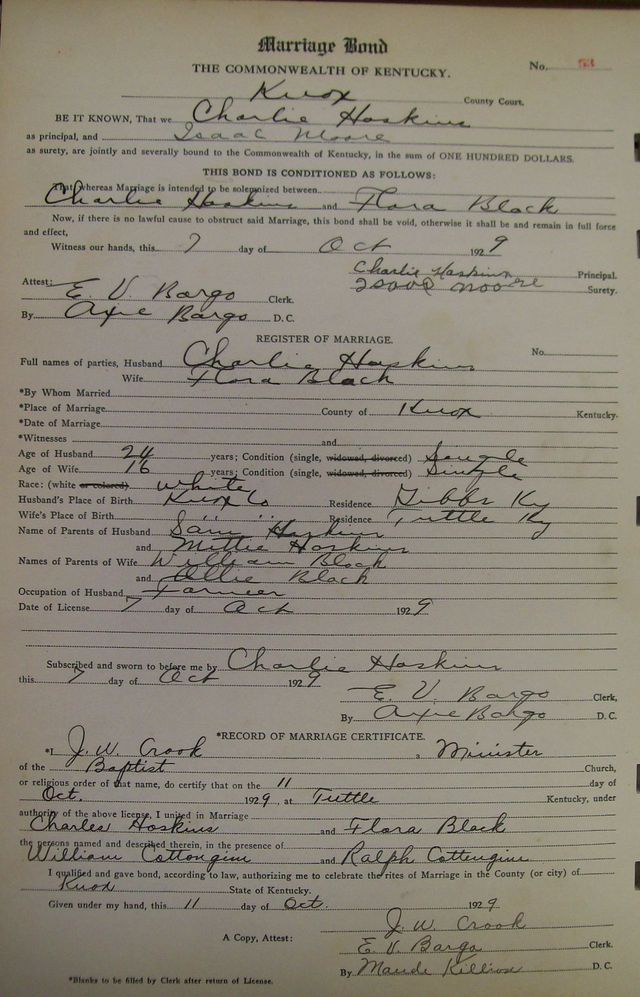 Marriage Bond
THE COMMONWEALTH OF KENTUCKY.
No.
Knox County Court.
BE IT KNOWN, That we Charlie Hoskins
as principal, and Isaac Moore
as surety, are jointly and severally bound to the Commonwealth of Kentucky, in the sum of ONE HUNDRED DOLLARS.
THIS BOND IS CONDITIONED AS FOLLOWS:
That whereas Marriage is intended to be solemnized between
Charlie Hoskins and Flora Black
Now, if there is no lawful cause to obstruct said Marriage, this bond shall be void, otherwise it shall be and remain in full force
and effect,
Witness our hands, this 7 day of Oct 1929
Charlie Hoskins Principal.
Attest: Isaac Moore Surety.
E. V. Bargo Clerk.
By Axie Bargo D. C.
REGISTER OF MARRIAGE.
No.
Full names of parties, Husband Charlie Hoskins
Wife Flora Black
*By Whom Married
*Place of Marriage County of Knox Kentucky.
*Date of Marriage
*Witnesses and
Age of Husband 24 years; Condition (single, widowed, divorced) Single
Age of Wife 16 years; Condition (single, widowed, divorced) Single
Race: (white or colored) White
Husband's Place of Birth Knox Co Residence Gibbs Ky
Wife's Place of Birth " " Residence Tuttle Ky
Name of Parents of Husband Sam Hoskins
and Mittie Hoskins
Names of Parents of Wife William Black
and Ollie Black
Occupation of Husband Farmer
Date of License 7 day of Oct 1929
Subscribed and sworn to before me by Charlie Hoskins
this 7 day of Oct 1929
E. V. Bargo Clerk,
By Axie Bargo D. C.
*RECORD OF MARRIAGE CERTIFICATE.
*I J. W. Crook, a Minister
of the Baptist Church,
or religious order of that name, do certify that on the 11 day of
Oct. 1929, at Tuttle Kentucky, under
authority of the above license, I united in Marriage
Charles Hoskins and Flora Black
the persons named and described therein, in the presence of
William Cottongim and Ralph Cottengim
I qualified and gave bond, according to law, authorizing me to celebrate the rites of Marriage in the County (or city) of
Knox State of Kentucky.
Given under my hand, this 11 day of Oct. 1929
J. W. Crook
A Copy, Attest: E. V. Bargo Clerk.
By Maude Killion D. C.
*Blanks to be filled by Clerk after return of License.